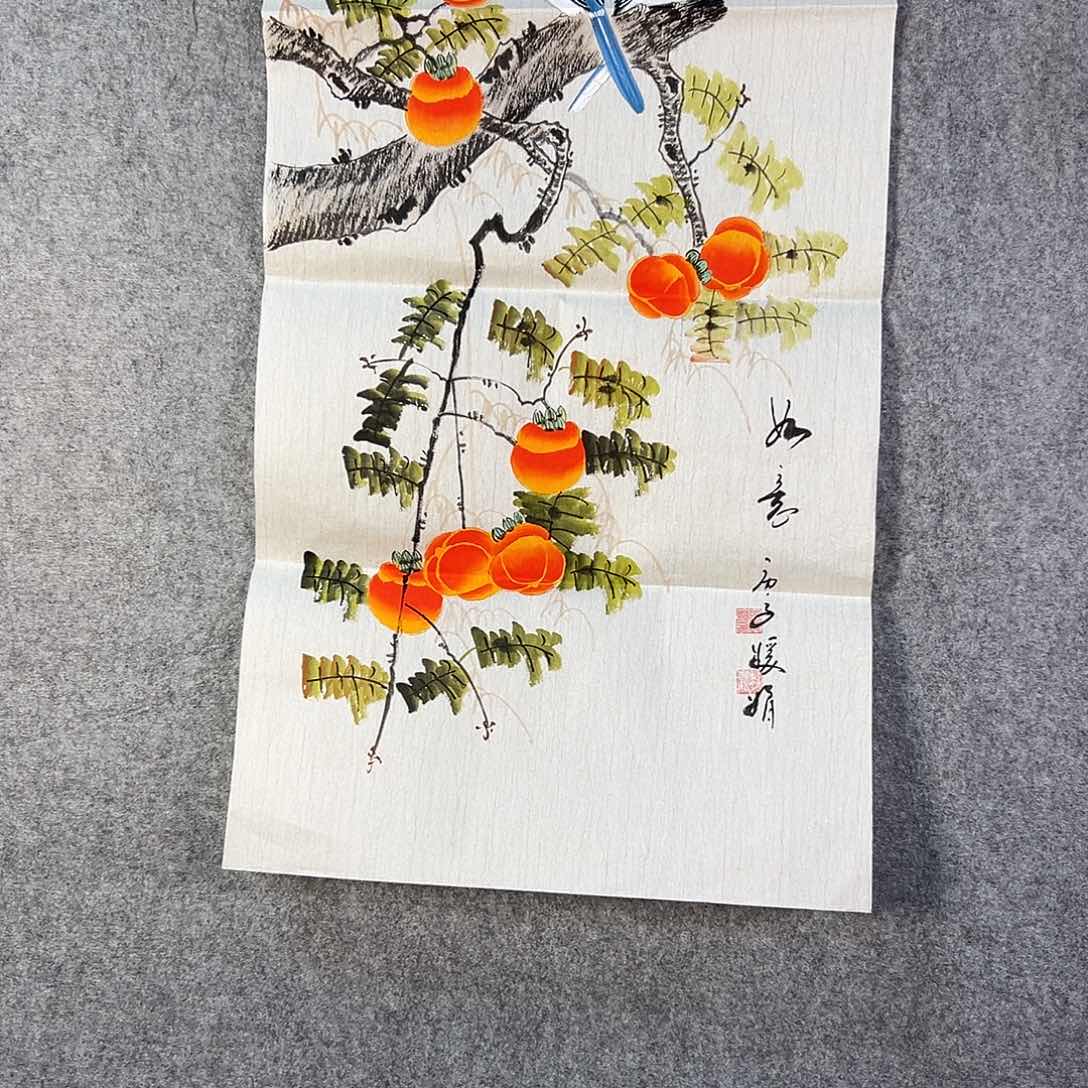 如意庚子媛娟